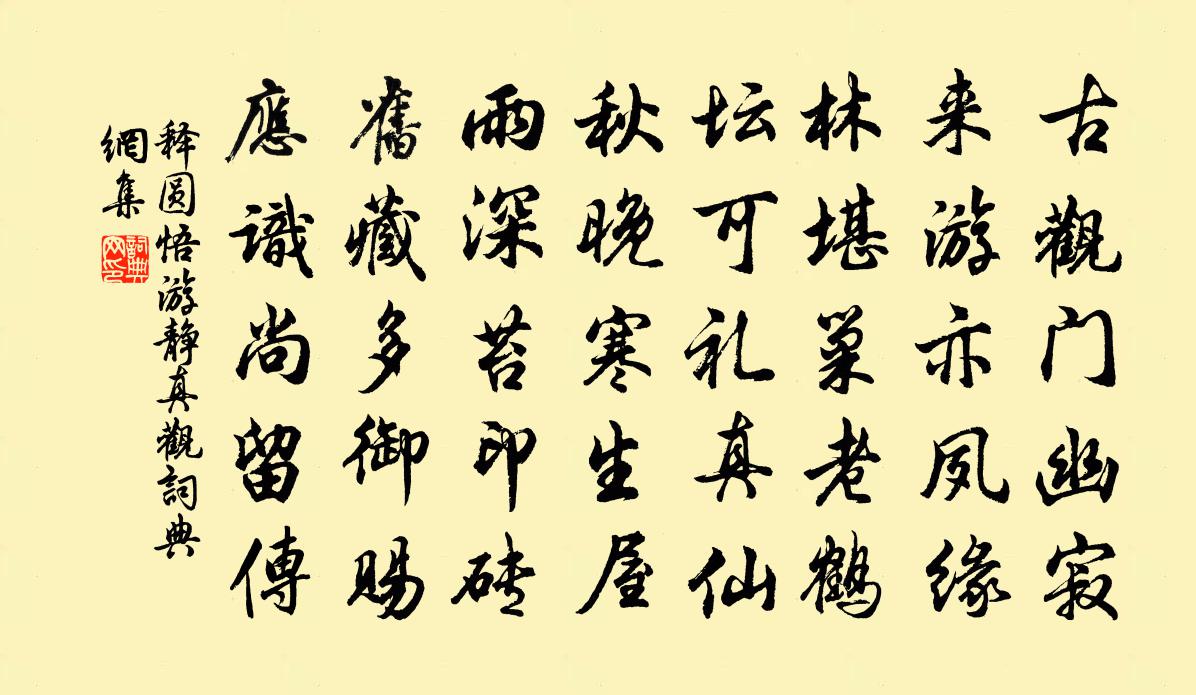 古觀门幽寂
来游亦夙缘
林堪巢老鶴
坛可礼真仙
秋晚寒生屋
雨深苔印砖
舊藏多御赐
應識尚留傳
释圆悟游静真觀詞典
網集
詞典
网印